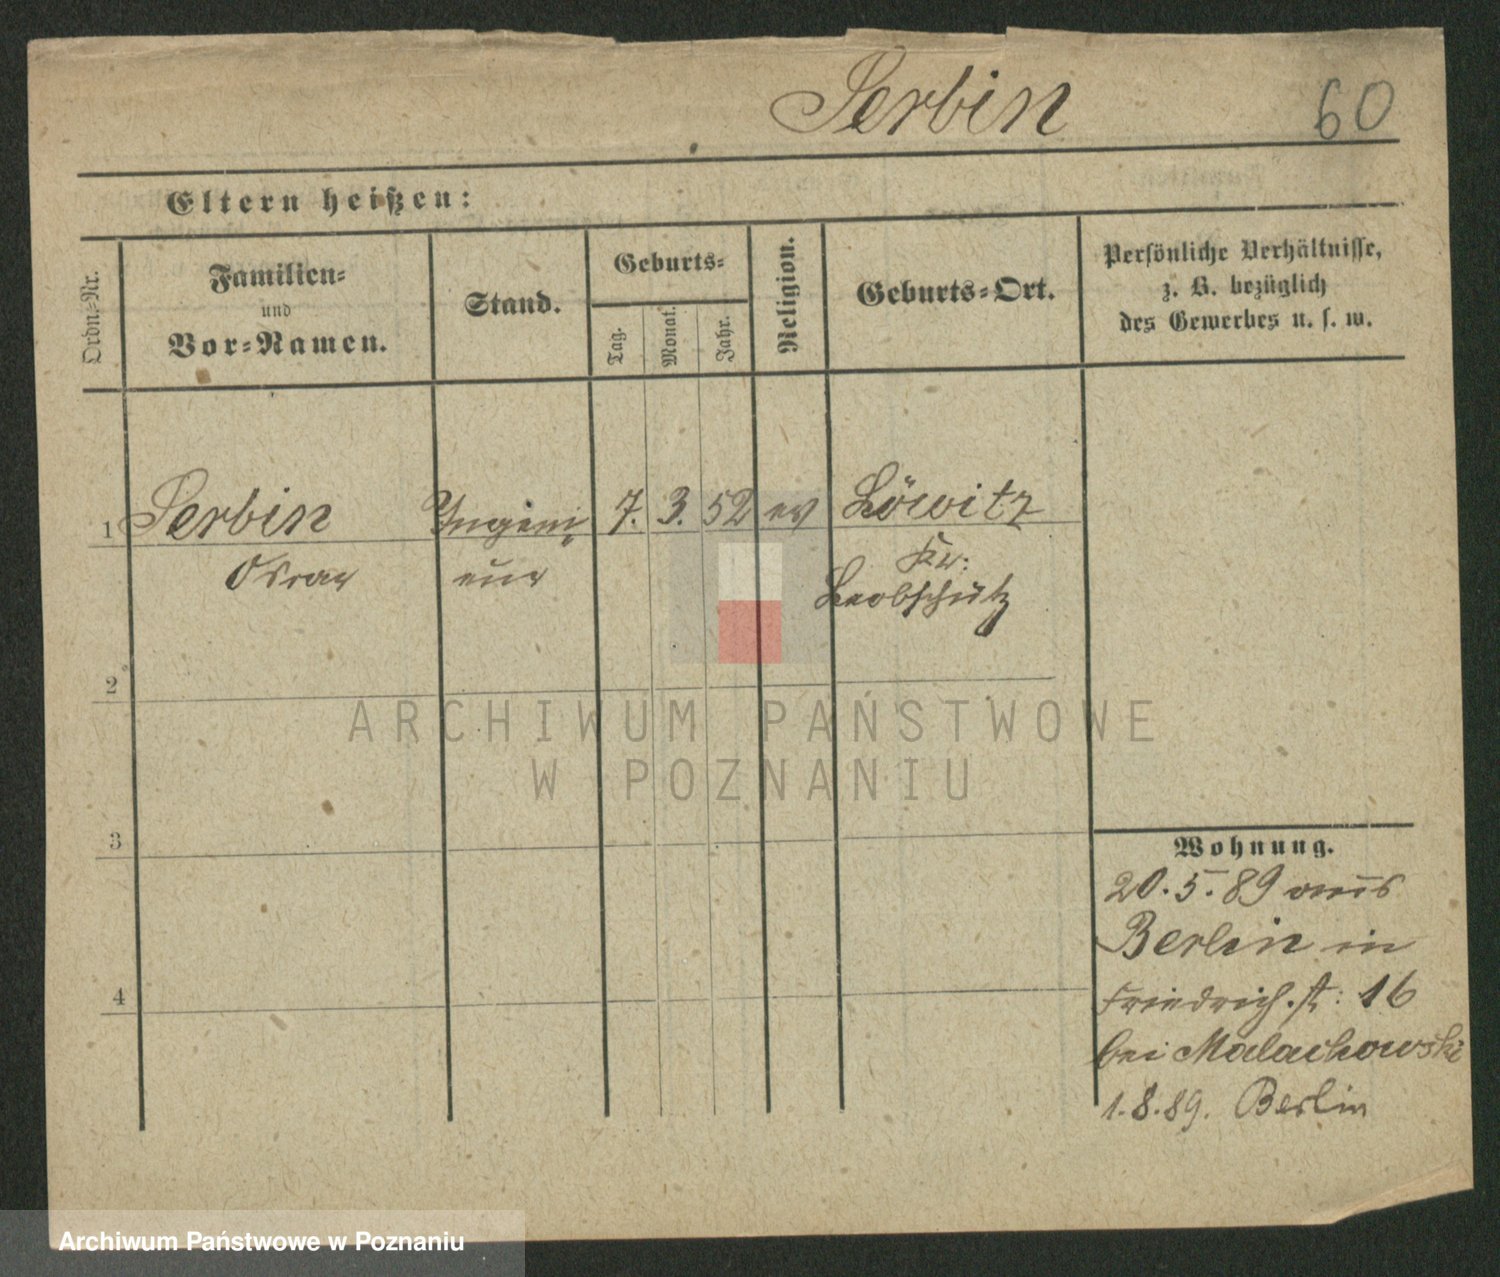 Serbin 60
Eltern heißen:
Ordn.-Nr.
Familien-
und
Vor-Namen.
Stand.
Geburts-
Tag.
Monat.
Jahr.
Religion.
Geburts-Ort.
Persönliche Verhältnisse,
z. B. bezüglich
des Gewerbes u. s. w.
1 Serbin Ingeni 7. 3. 52 ev Löwitz
Oskar eur Kr:
Leobschütz
2
ARCHIWUM PAŃSTWOWE
W POZNANIU
3
4
Wohnung.
20.5.89 aus
Berlin in
Friedrich.st: 16
bei Malachowski
1.8.89. Berlin
Archiwum Państwowe w Poznaniu